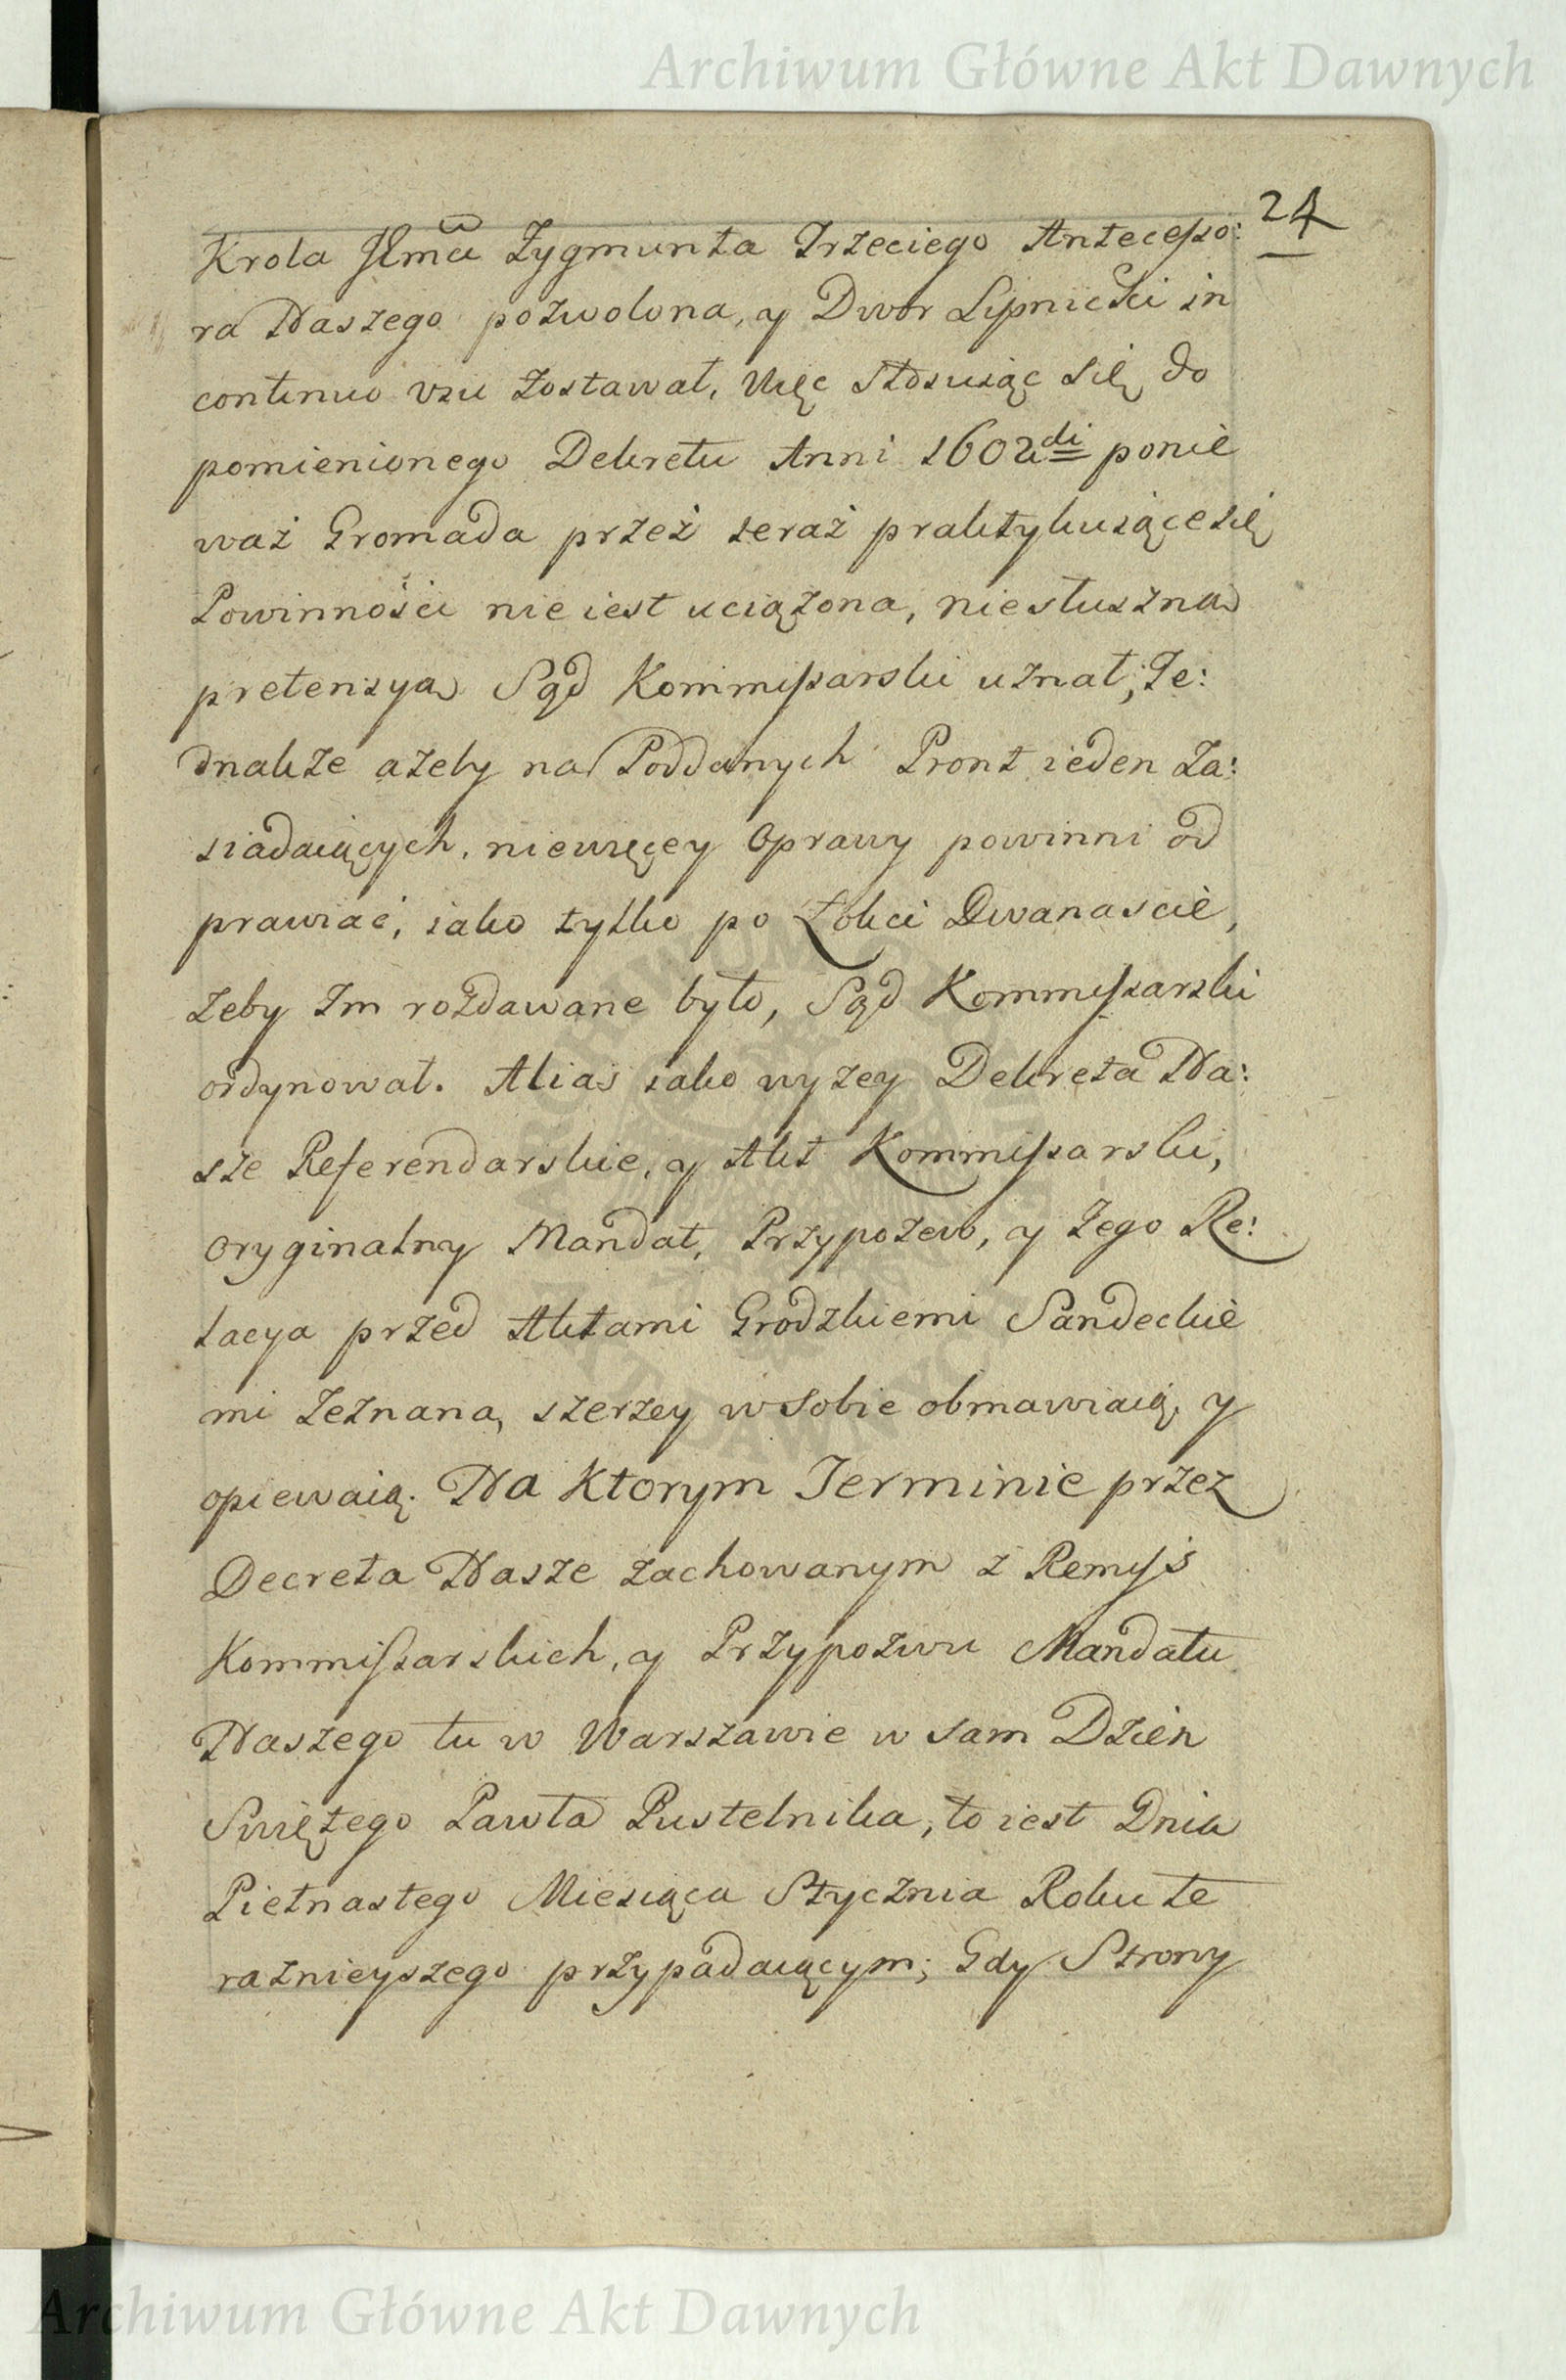 Archiwum Główne Akt Dawnych
24
Krola JEmci Zygmunta Trzeciego Antecesso:
ra Naszego pozwolona, y Dwor Lipnicki in
continuo vsu zostawał, Więc stosuiąc się do
pomienionego Dekretu Anni 1602di ponie
waż Gromada przez teraz praktykuiące się
Powinności nie iest uciążona, niesłuszna
pretensya Sąd Kommissarski uznał; Je:
dnakże ażeby na Poddanych Pront ieden za:
siadaiących, niewięcey Oprawy powinni od
prawiać, iako tylko po Łokci Dwanascie,
żeby Im rozdawane było, Sąd Kommissarski
ordynował. Alias iako wyżey Dekreta Na:
sze Referendarskie, y Akt Kommissarski,
Oryginalny Mandat, Przypozew, y Jego Re:
lacya przed Aktami Grodzkiemi Sandeckie
mi zeznana, szerzey w sobie obmawiaią, y
opiewaią. Na Ktorym Terminie przez
Decreta Nasze zachowanym z Remiss
Kommissarskich, y Przypozwu Mandatu
Naszego tu w Warszawie w sam Dzien
Swiętego Pawła Pustelnika, to iest Dnia
Pietnastego Miesiąca Stycznia Roku te
raznieyszego przypadaiącym; Gdy Strony
Archiwum Główne Akt Dawnych